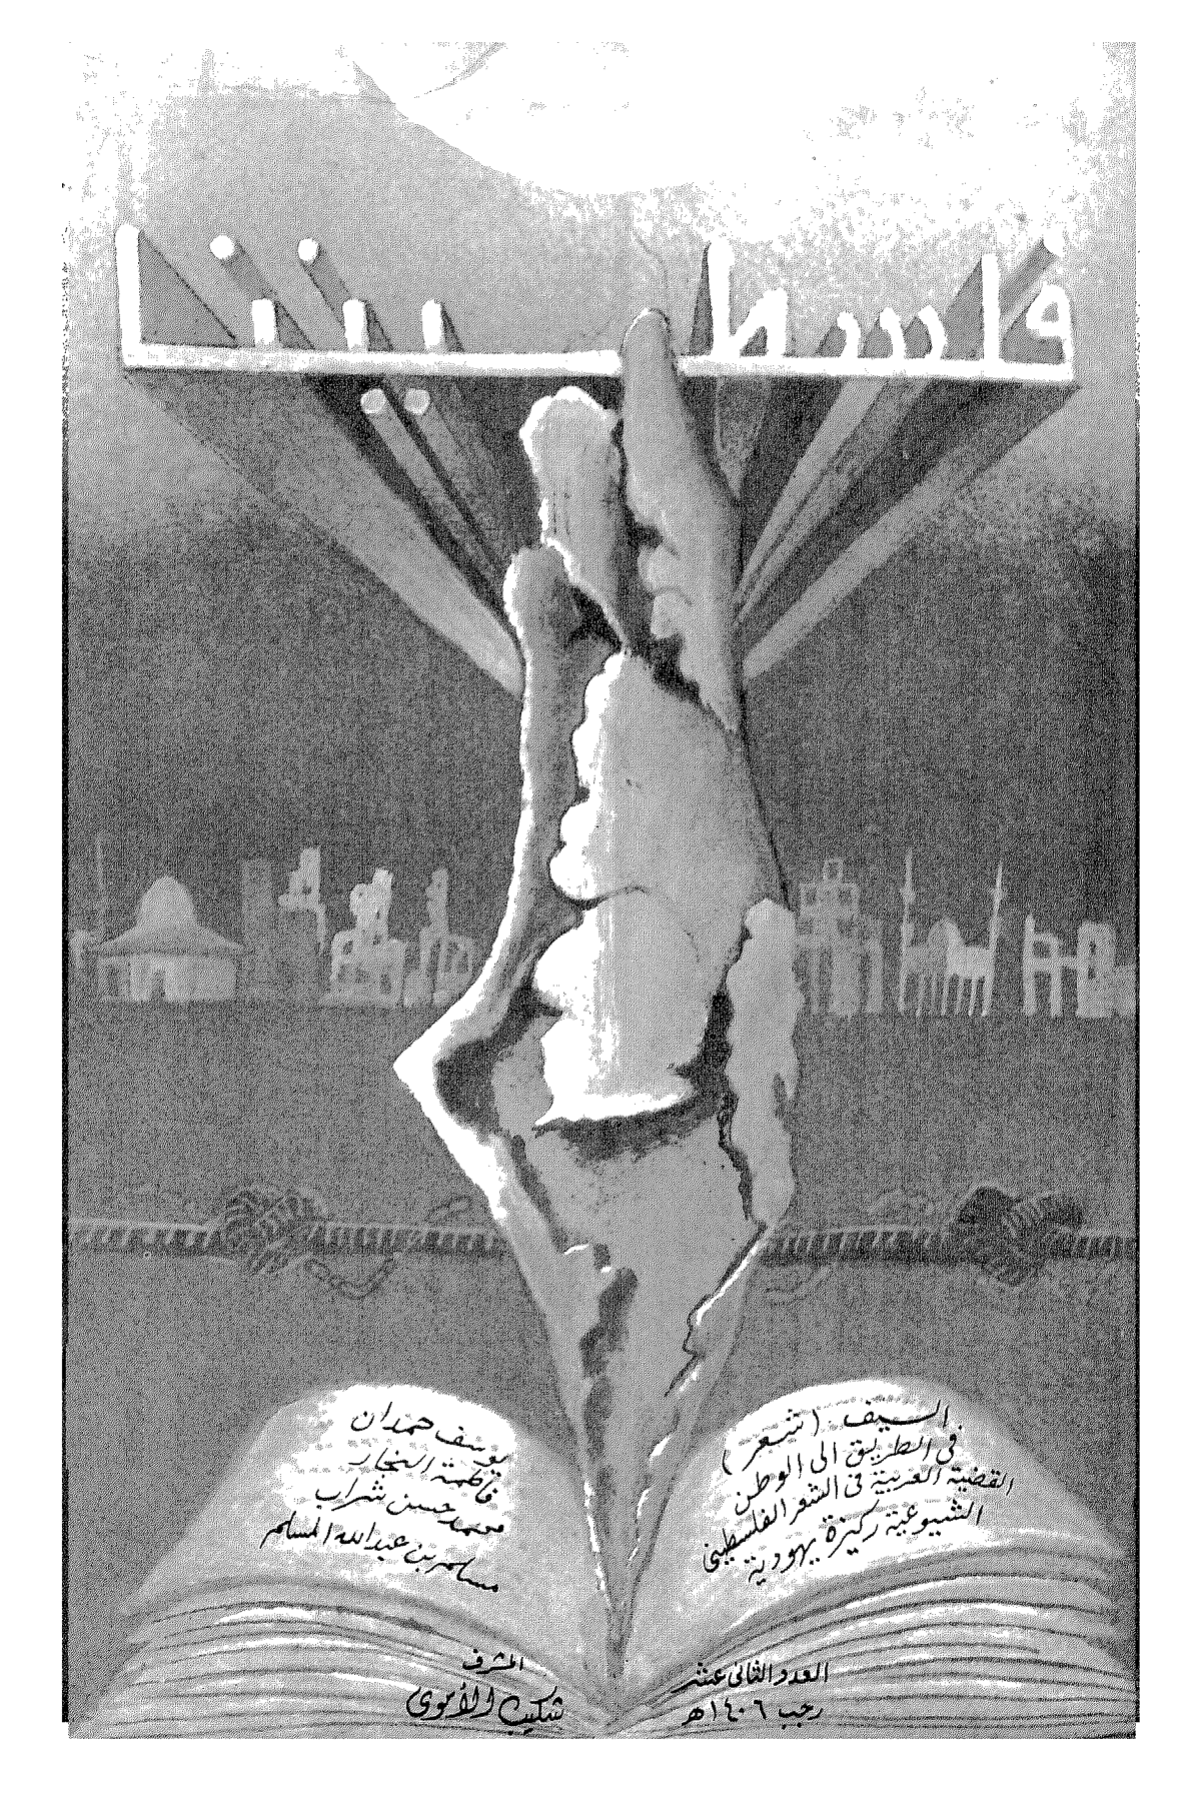 فلسطيننا
السيف (شعر)
في الطريق الى الوطن
القضية العربية في الشعر الفلسطيني
الشيوعية ركيزة يهودية
يوسف حمدان
فاطمة النجار
محمد حسن شراب
مسلم بن عبدالله المسلم
العدد الثاني عشر
رجب ١٤٠٦هـ
المشرف
شكيب الأموي